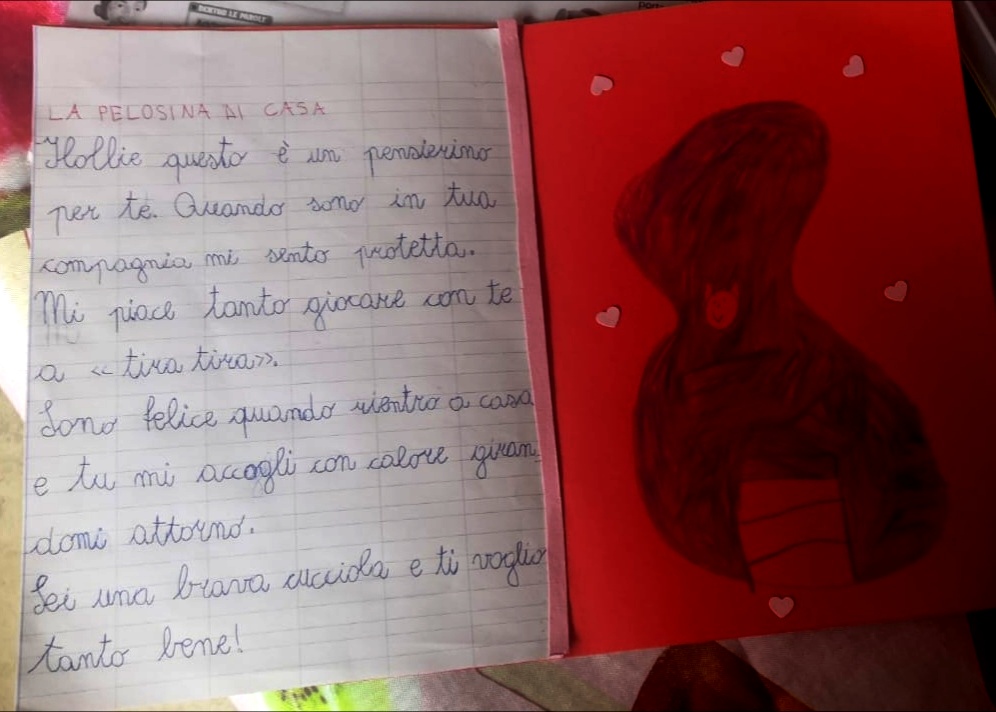 DENTRO LE PAROLE
LA PELOSINA DI CASA
Hollie questo è un pensierino
per te. Quando sono in tua
compagnia mi sento protetta.
Mi piace tanto giocare con te
a «tira tira».
Sono felice quando rientro a casa
e tu mi accogli con calore giran_
domi attorno.
Sei una brava cucciola e ti voglio
tanto bene!